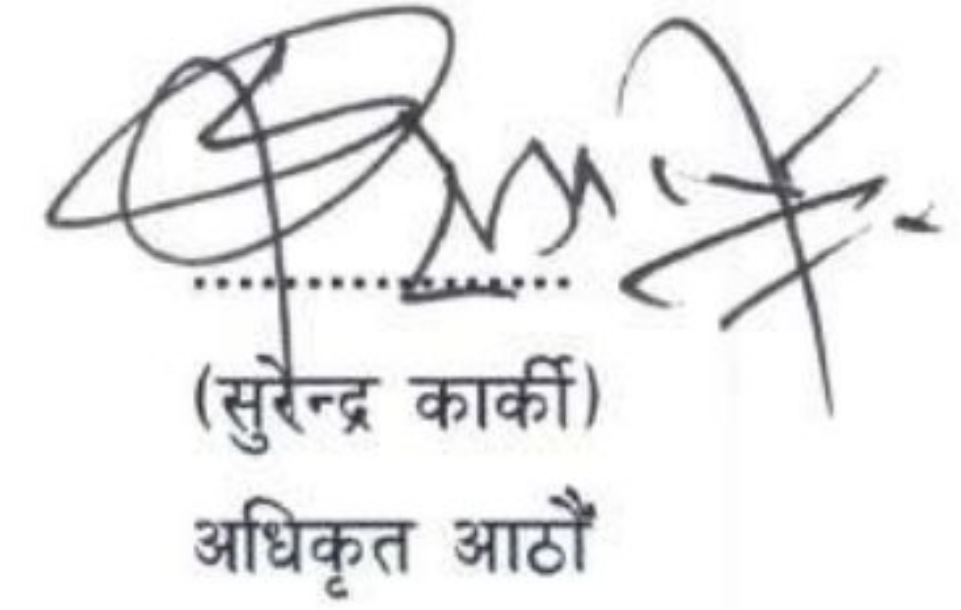 ....................
(सुरेन्द्र कार्की)
अधिकृत आठौँ